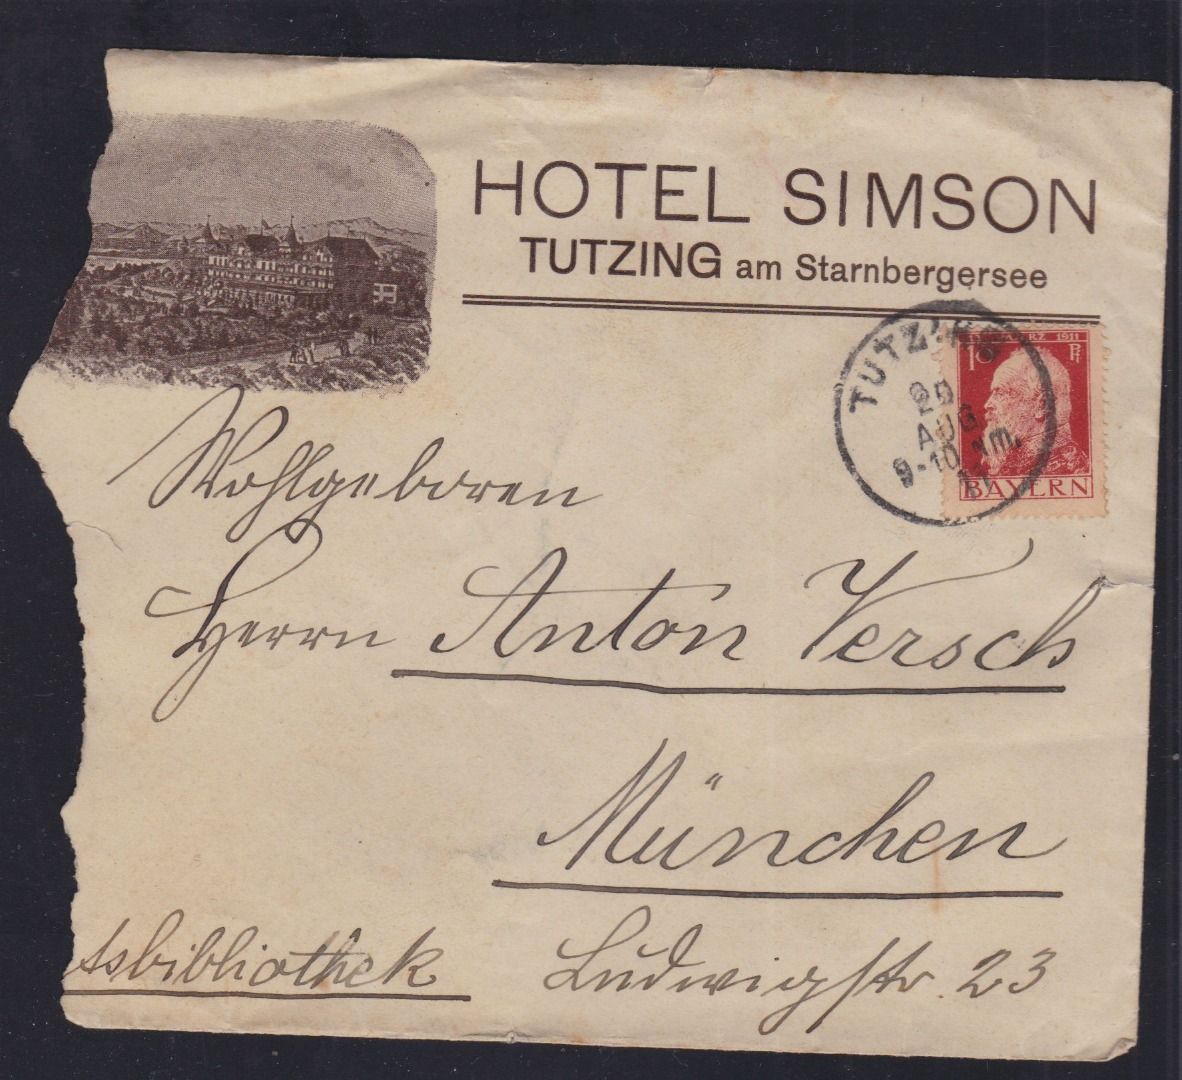 HOTEL SIMSON
TUTZING am Starnbergersee
TUTZING
20
AUG
9-10 Nm.
11
10 Pf
MÄRZ 1911
BAYERN
Wohlgeboren
Herrn Anton Versch
München
tsbibliothek Ludwigstr. 23